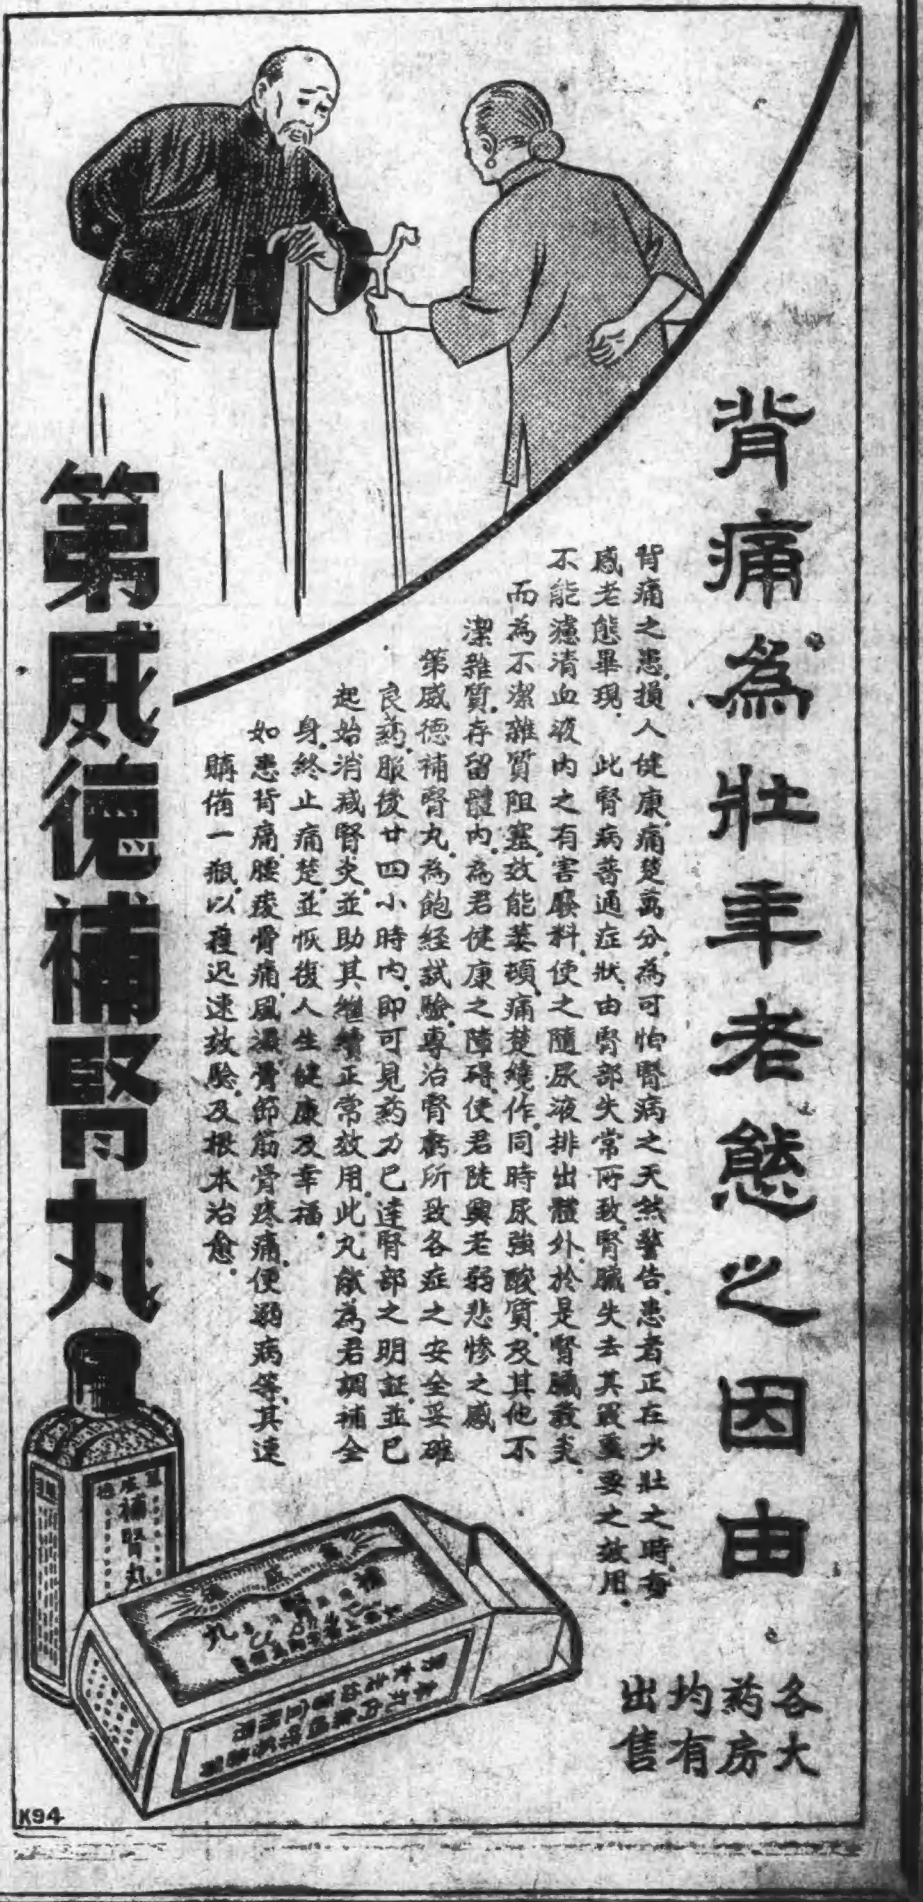 背痛為壯年老態之因由
背痛之患損人健康痛楚萬分為可怕腎病之天然警告患者正在少壯之時有
感老態畢現此腎病普通症狀由腎部失常所致腎臟失去其最重要之效用
不能濾清血液內之有害廢料使之隨尿液排出體外於是腎臟發炎
而為不潔雜質阻塞效能萎頓痛楚繞作同時尿強酸質及其他不
潔雜質存留體內為君健康之障碍使君陡興老弱悲慘之感
第威德補腎丸為飽經試驗專治腎虧所致各症之安全妥確
良药服後廿四小時內即可見药力已達腎部之明証並已
起始消減腎炎並助其繼續正常效用此丸能為君調補全
身終止痛楚並恢復人生健康及幸福
如患背痛腰痠骨痛風濕骨節筋骨疼痛便溺病等其速
購備一瓶以獲迅速效驗及根本治愈
第威德補腎丸
各大
药房
均有
出售
補腎丸
K94